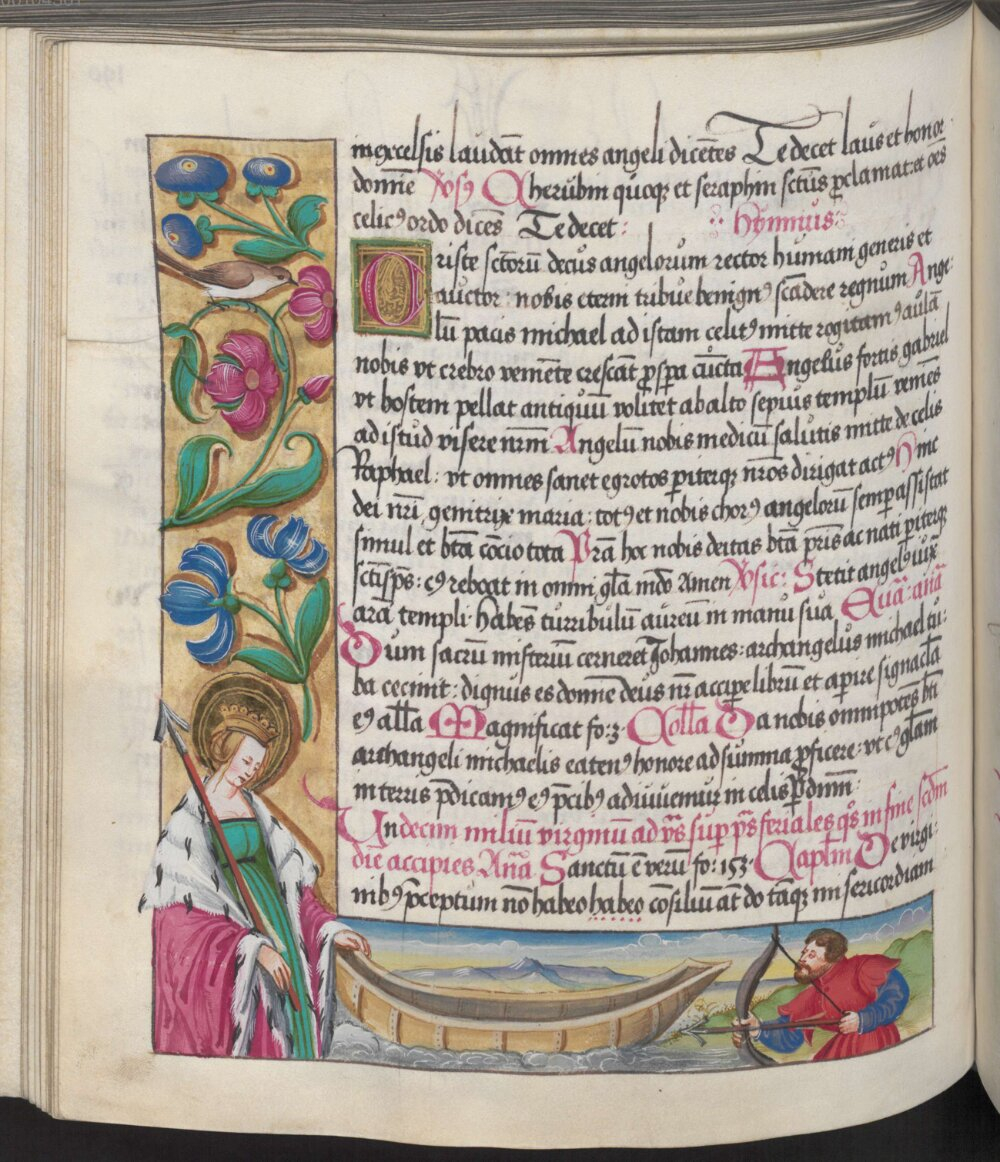 in excelsis laudāt omnes angeli dicētes Te decet laus et honor
domīe Vosꝰ Cherubin quoqꝫ et seraphin sctūs ꝓclamāt: et oēs
celicꝰ ordo dicēs Te decet: Hymnus:
Criste sctorū decus angelorum rector humani generis et
auctor: nobis eterni tribue benignꝰ scādere regnum Ange-
lū pacis michael ad istam celitꝰ mitte rogitamꝰ aulā
nobis vt crebro veniēte crescāt ꝓspa cūcta Angelus fortis gabriel
vt hostem pellat antiquū volitet ab alto sepius templū veniēs
ad istud visere nrm̄ Angelū nobis medicū salutis mitte de celis
Raphael: vt omnes sanet egrotos piterqꝫ nr̄os dirigat actꝰ Hinc
dei nr̄i genitrix maria: totꝰ et nobis chorꝰ angelorū semp assistat
simul et btā cōcio tota Prā hoc nobis deitas btā pr̄is ac nati piterqꝫ
sctīsps̄: cꝰ reboat in omni gl̄a mdō Amen Vsic: Stetit angelꝰ iux̄
arā templi habēs turribulū aureū in manu sua Euā: anā
Dum sacrū misteriū cerneret Johannes: archangelus michael tu-
ba cecinit: dignus es domīe deus nr̄ accipe librū et aperire signacl̄a
eꝰ all̄a Magnificat fo: 3 Coll̄a Da nobis omnipotēs btī
archangeli michaelis eatenꝰ honore ad summa ꝓficere: vt cꝰ gl̄am
in terris p̄dicamꝰ eꝰ p̄cibꝰ adiuuemur in celis P dnm̄
Undecim miliū virginū ad vs̄ sup ps̄ feriales qs̄ in fine scdm̄
die accipies Anā Sanctū ē verū fo: 153 Caplm̄ De virgi-
nibꝰ p̄ceptum nō habeo habeo cōsiliū at̄ do tāqꝫ misericordiam